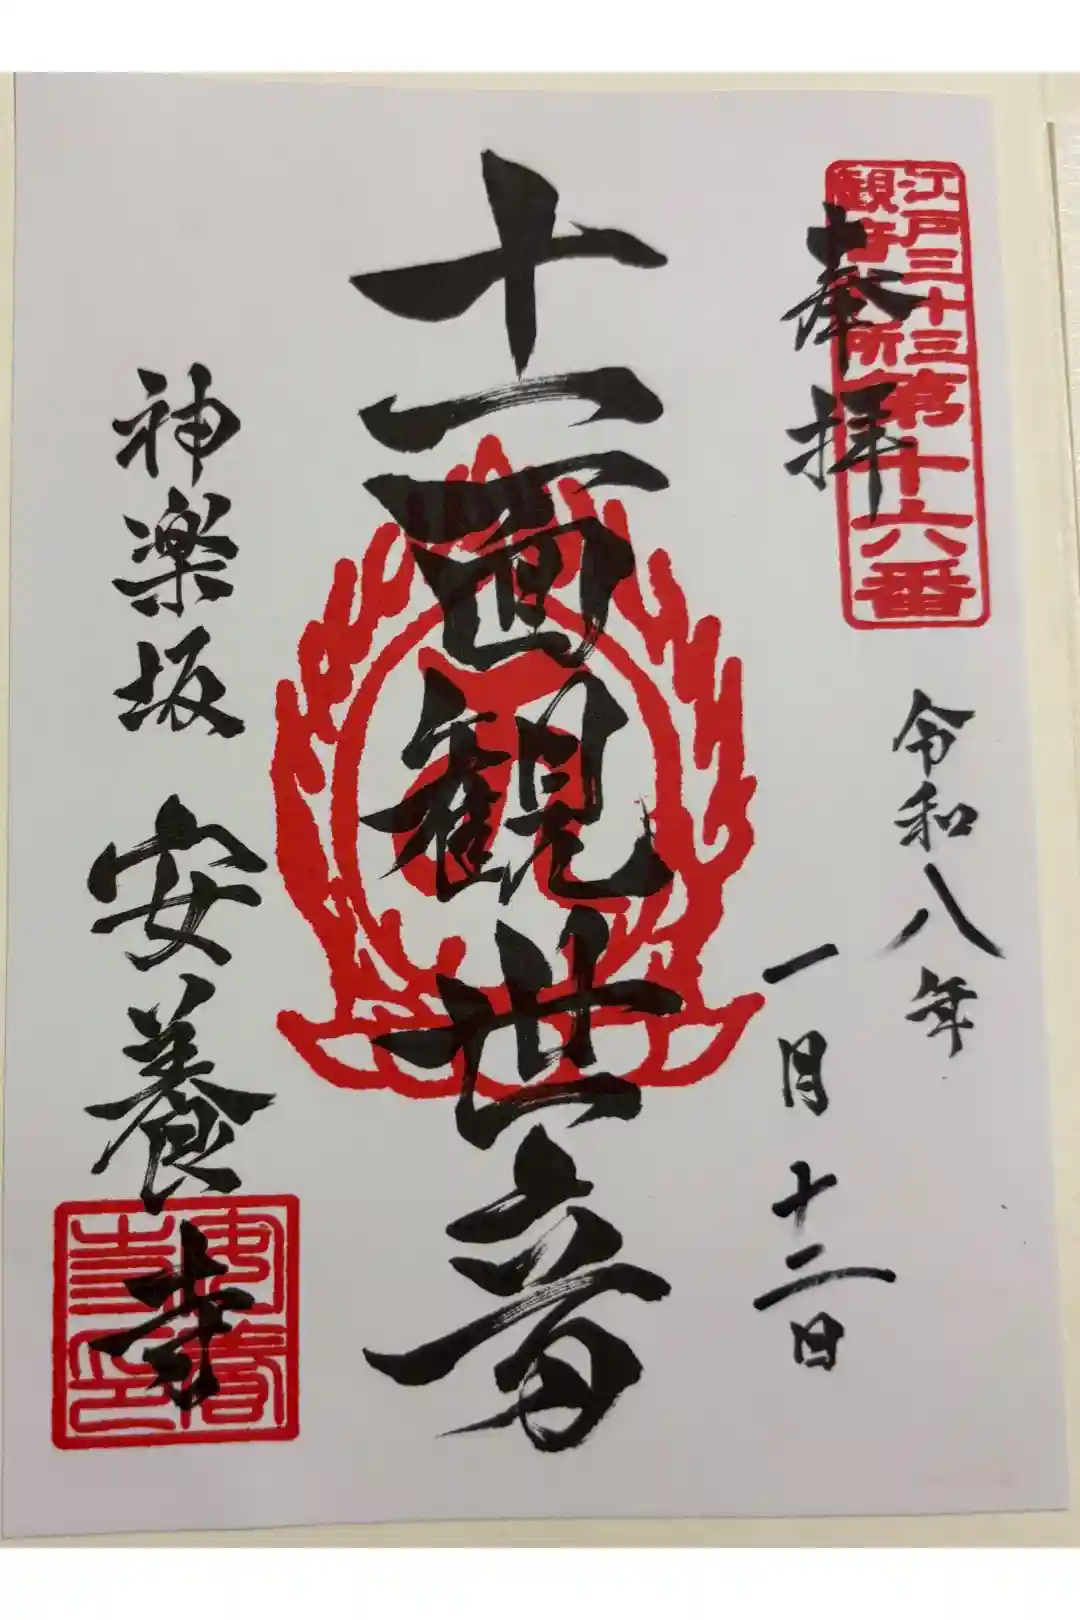 江戸三十三
観音札所
第十六番
奉拝
令和八年
一月十二日
十一面観世音
神楽坂 安養寺
安養
寺印